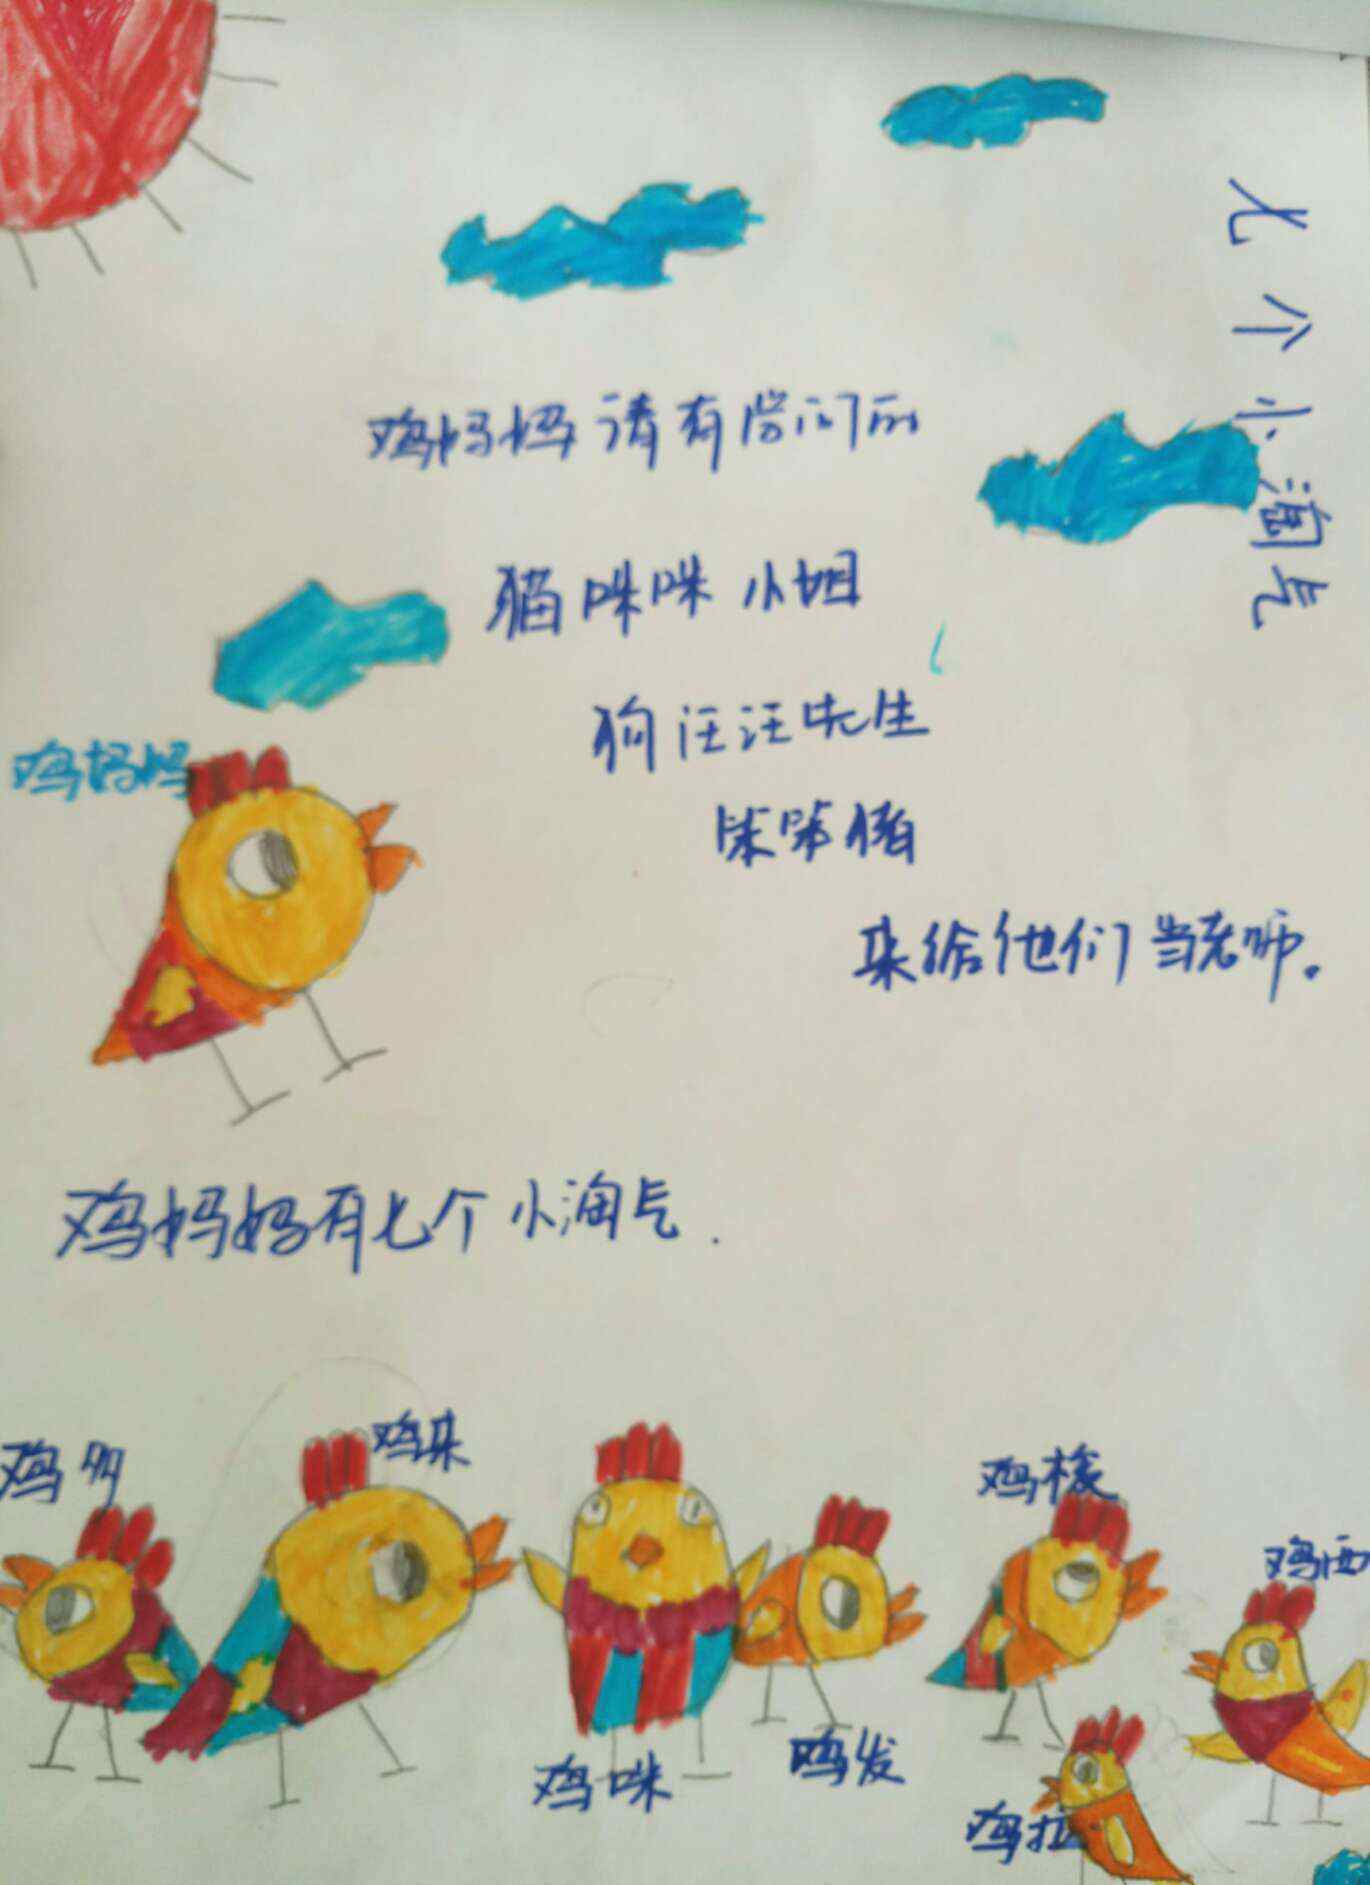 七个小淘气
鸡妈妈请有学问的
猫咪咪小姐
狗汪汪先生
笨笨猪
来给他们当老师。
鸡妈妈
鸡妈妈有七个小淘气.
鸡多
鸡来
鸡咪
鸡发
鸡梭
鸡拉
鸡西